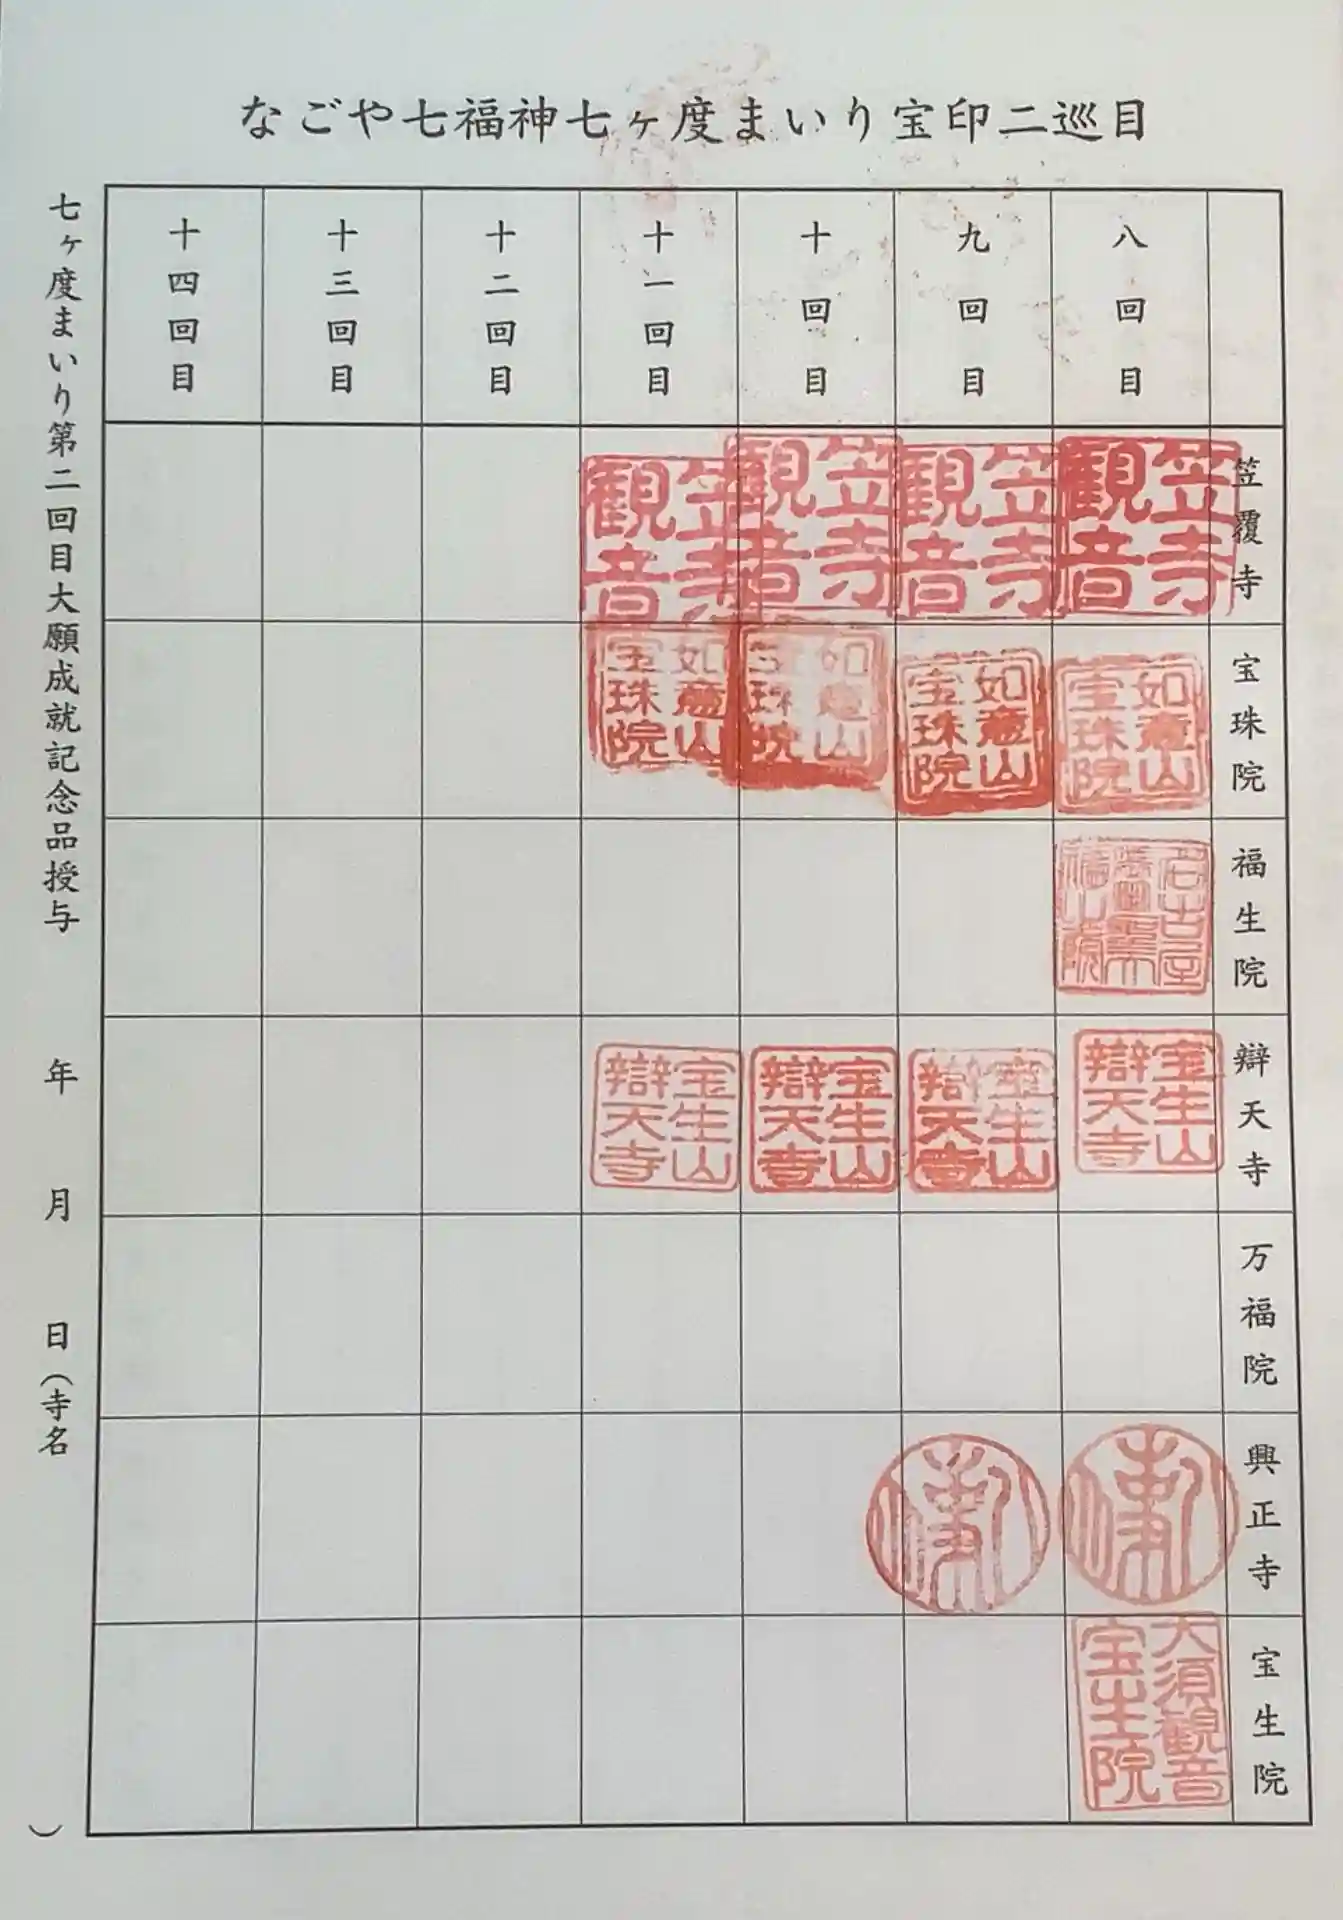 なごや七福神七ヶ度まいり宝印二巡目
八回目
九回目
十回目
十一回目
十二回目
十三回目
十四回目
笠覆寺
笠寺観音
笠寺観音
笠寺観音
笠寺観音
宝珠院
如意山宝珠院
如意山宝珠院
如意山宝珠院
如意山宝珠院
福生院
辯天寺
宝生山辯天寺
宝生山辯天寺
宝生山辯天寺
宝生山辯天寺
万福院
興正寺
宝生院
大須観音宝生院
七ヶ度まいり第二回目大願成就記念品授与　年　月　日（寺名　）